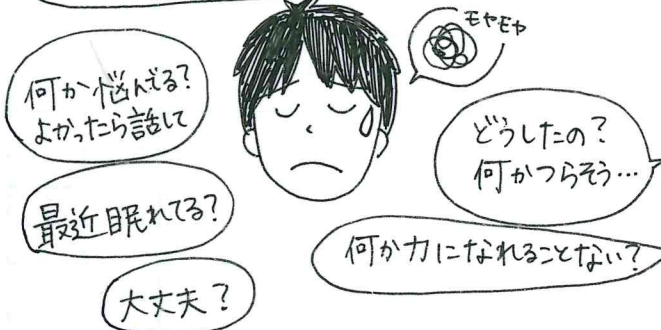 モヤモヤ
何か悩んでる？
よかったら話して
どうしたの？
何かつらそう…
最近眠れてる？
何か力になれることない？
大丈夫？